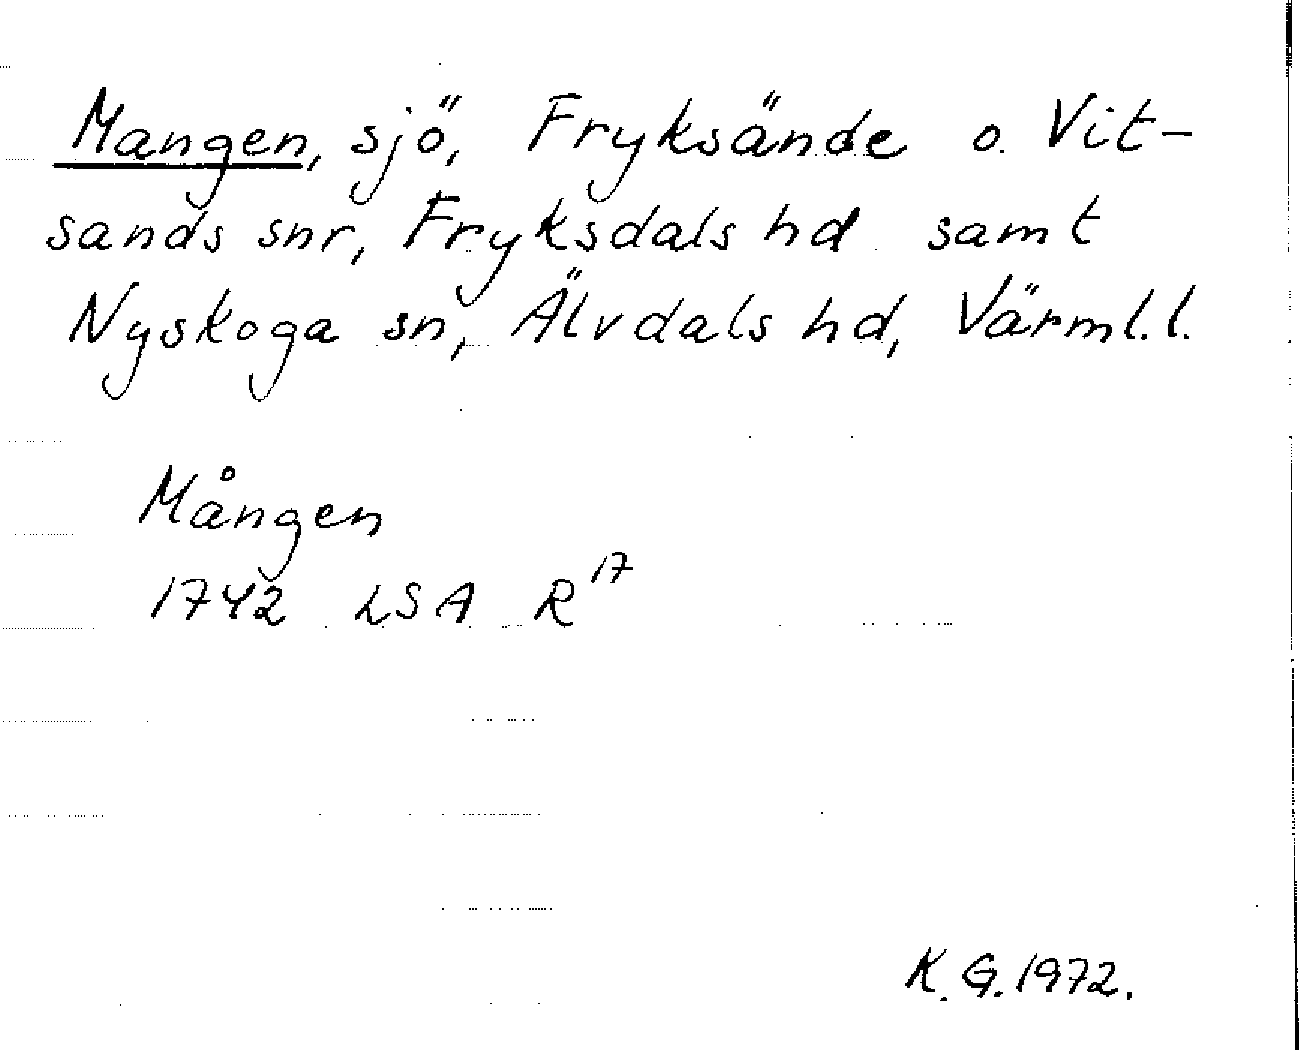 Mangen, sjö, Fryksände o. Vit-
sands snr, Fryksdals hd samt
Nyskoga sn, Älvdals hd, Värml. l.
Mången
1742 LSA R17
K. G. 1972.